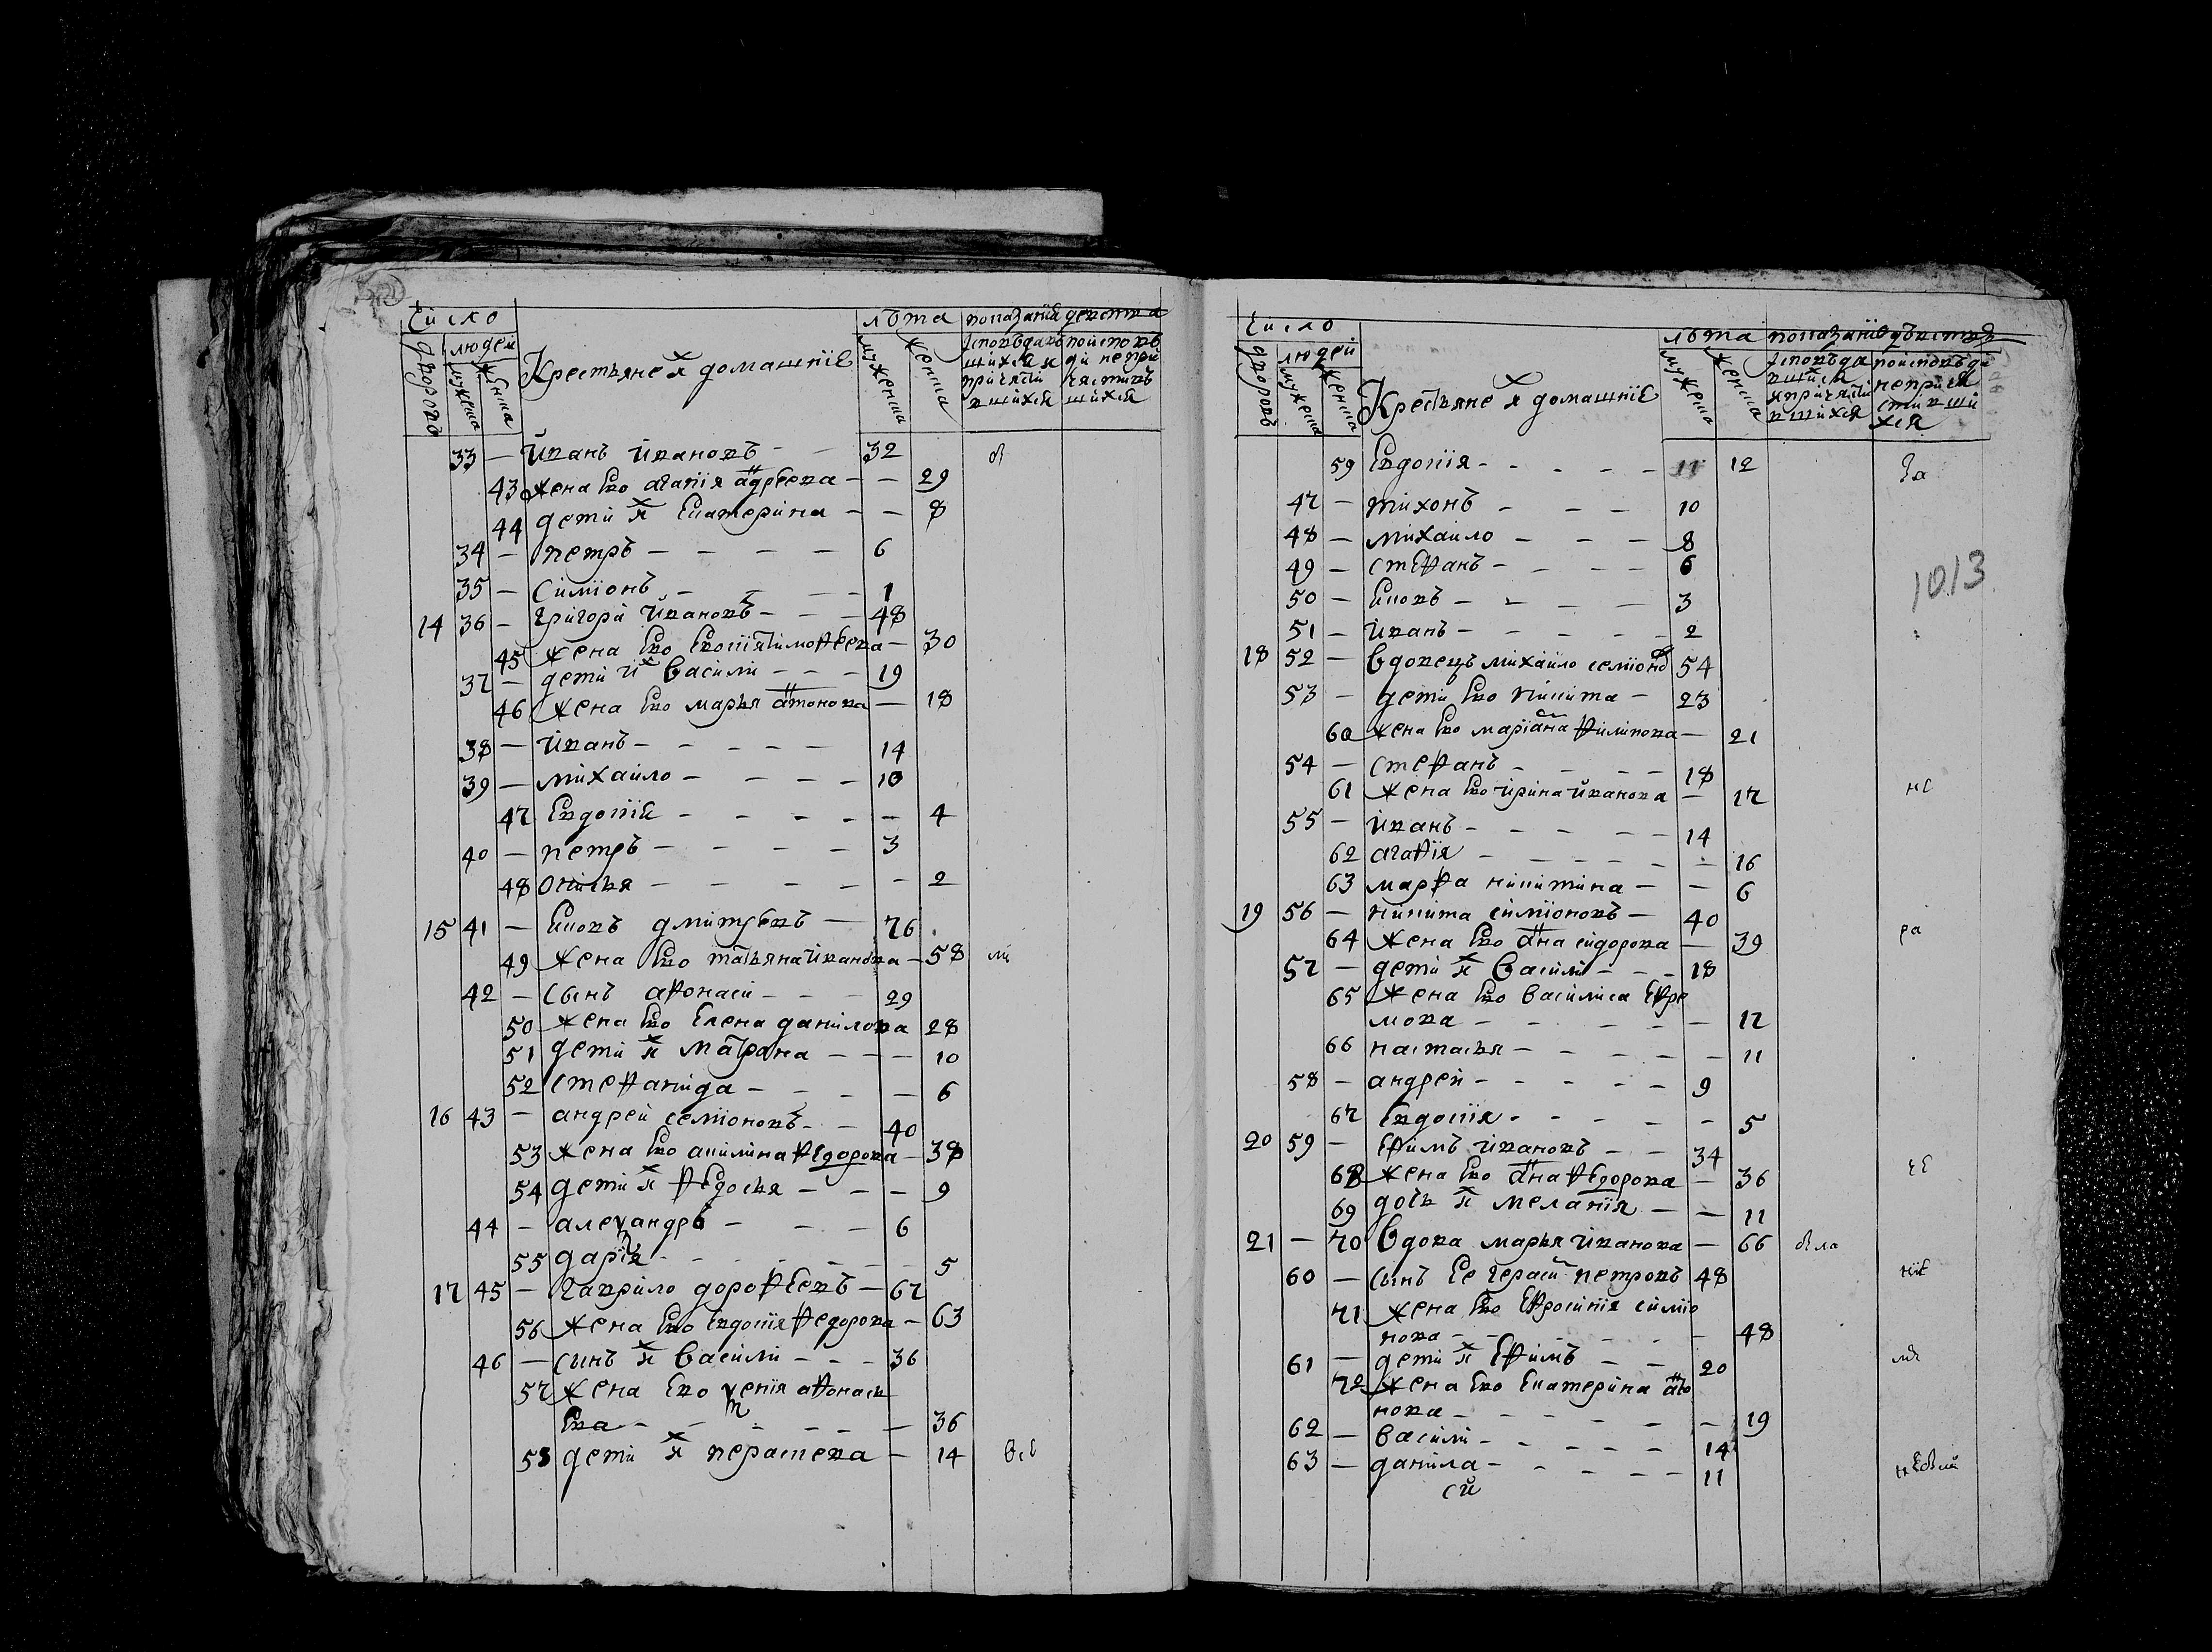 Число
людей
дворовъ
мужеска
женска
Крестьяне и х домашніе
лѣта
мужеска
женска
показаніе действа
исповѣдав
шихся и
причасти
вшихся
по исповѣ
ди непри
частив
шихся
33 — Иванъ Ивановъ - - 32
43 жена ево агапія андреева - - 29
44 дети их Екатерина - - 8
34 — петръ - - - - 6
35 — симіонъ - - - - 1
14 36 — григори Ивановъ - - - 48
45 жена ево тимофеева - 30
37 — дети их Васили - - - 19
46 жена ево марья антонова - 18
38 — Иванъ - - - - - 14
39 — михаило - - - - 10
47 Евдокіе - - - - - 4
40 — петръ - - - - 3
48 - - - - - 2
15 41 — яковъ дмитревъ - 76
49 жена ево татьяна Иванова - 58 ли
42 — сынъ афонаси - - - 29
50 жена ево Елена данилова 28
51 дети их матрона - - - 10
52 стефанида - - - - 6
16 43 — андрей семіоновъ - - 40
53 жена ево акилина федорова - 38
54 дети их федосья - - - 9
44 — алеѯандръ - - - 6
55 дарія - - - - - - 5
17 45 — гаврило дорофеевъ - 67
56 жена ево Евдокія федорова - 63
46 — сынъ их Васили - - - 36
57 жена ево ѯенія афонась
ева - - - - - - 36
58 дети их параскева - 14 все
Число
людей
дворовъ
мужеска
женска
Крестьяне и х домашніе
лѣта
мужеска
женска
показаніе дѣиства
исповѣда
вшися
и причасти
вшихся
по исповѣди
неприча
стивши
хся
59 Евдокія - - - - - 12 за
47 — тихонъ - - - 10
48 — михаило - - - 8
49 — стефанъ - - - - 6
1013
50 — яковъ - - - - 3
51 — Иванъ - - - - - 2
18 52 — вдовецъ михаило семіоно 54
53 — дети ево никита - 23
60 жена ево маріана филипова - 21
54 — стефанъ - - - - 18
61 жена ево ирина иванова - 17 не
55 — Иванъ - - - - - 14
62 агафія - - - - - - 16
63 марфа никитина - - 6
19 56 — никита симіоновъ - 40
64 жена ево анна сидорова - 39 ра
57 — дети их Васили - - - 18
65 жена ево василиса Ефре
мова - - - - - 17
66 настасья - - - - - 11
58 — андреи - - - - - 9
67 Евдокія - - - - - 5
20 59 — Ефимъ ивановъ - - 34
68 жена ево анна федорова - 36 че
69 дочь их меланія - - 11
21 — 70 Вдова марья иванова - 66 была
60 — сынъ Ее гераси петровъ 48 ніе
71 жена ево Ефросинія симіо
нова - - - - - - 48
61 — дети их Ефимъ - - 20 мя
72 жена ево Екатерина анто
нова - - - - - - 19
62 — Васили - - - - - 14
63 — данила - - - - - 11
си